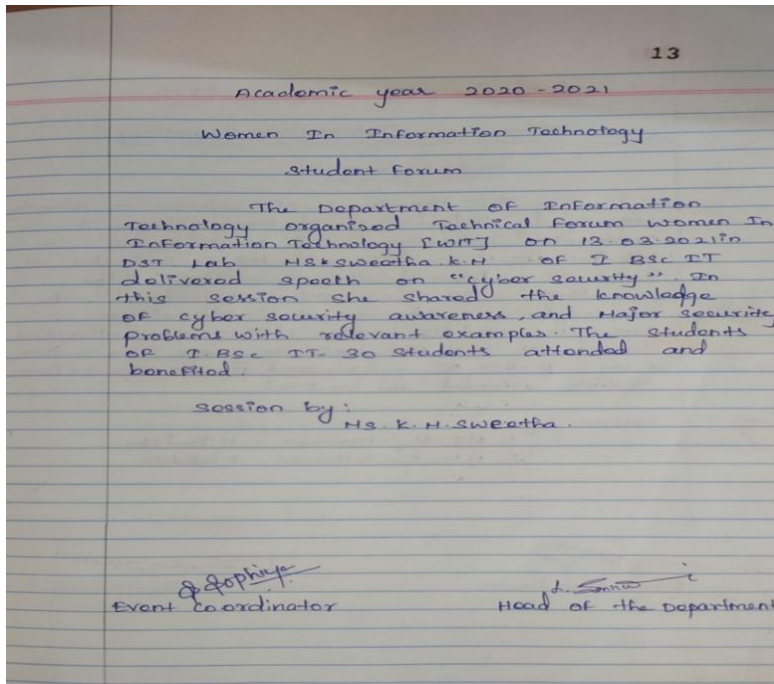 13
Academic year 2020-2021
Women In Information Technology
Student Forum
The Department of Information
Technology organised Technical Forum Women In
Information Technology [WIT] on 13.03.2021 in
DST Lab Ms Sweetha K.M of I BSc IT
delivered speech on "cyber security". In
this session she shared the knowledge
of cyber security awareness, and Major security
problems with relevant examples. The students
of I. BSc IT- 30 students attended and
benefited.
Session by:
Ms. K. M. Sweetha.
Sophiya
Event Coordinator
Head of the Department